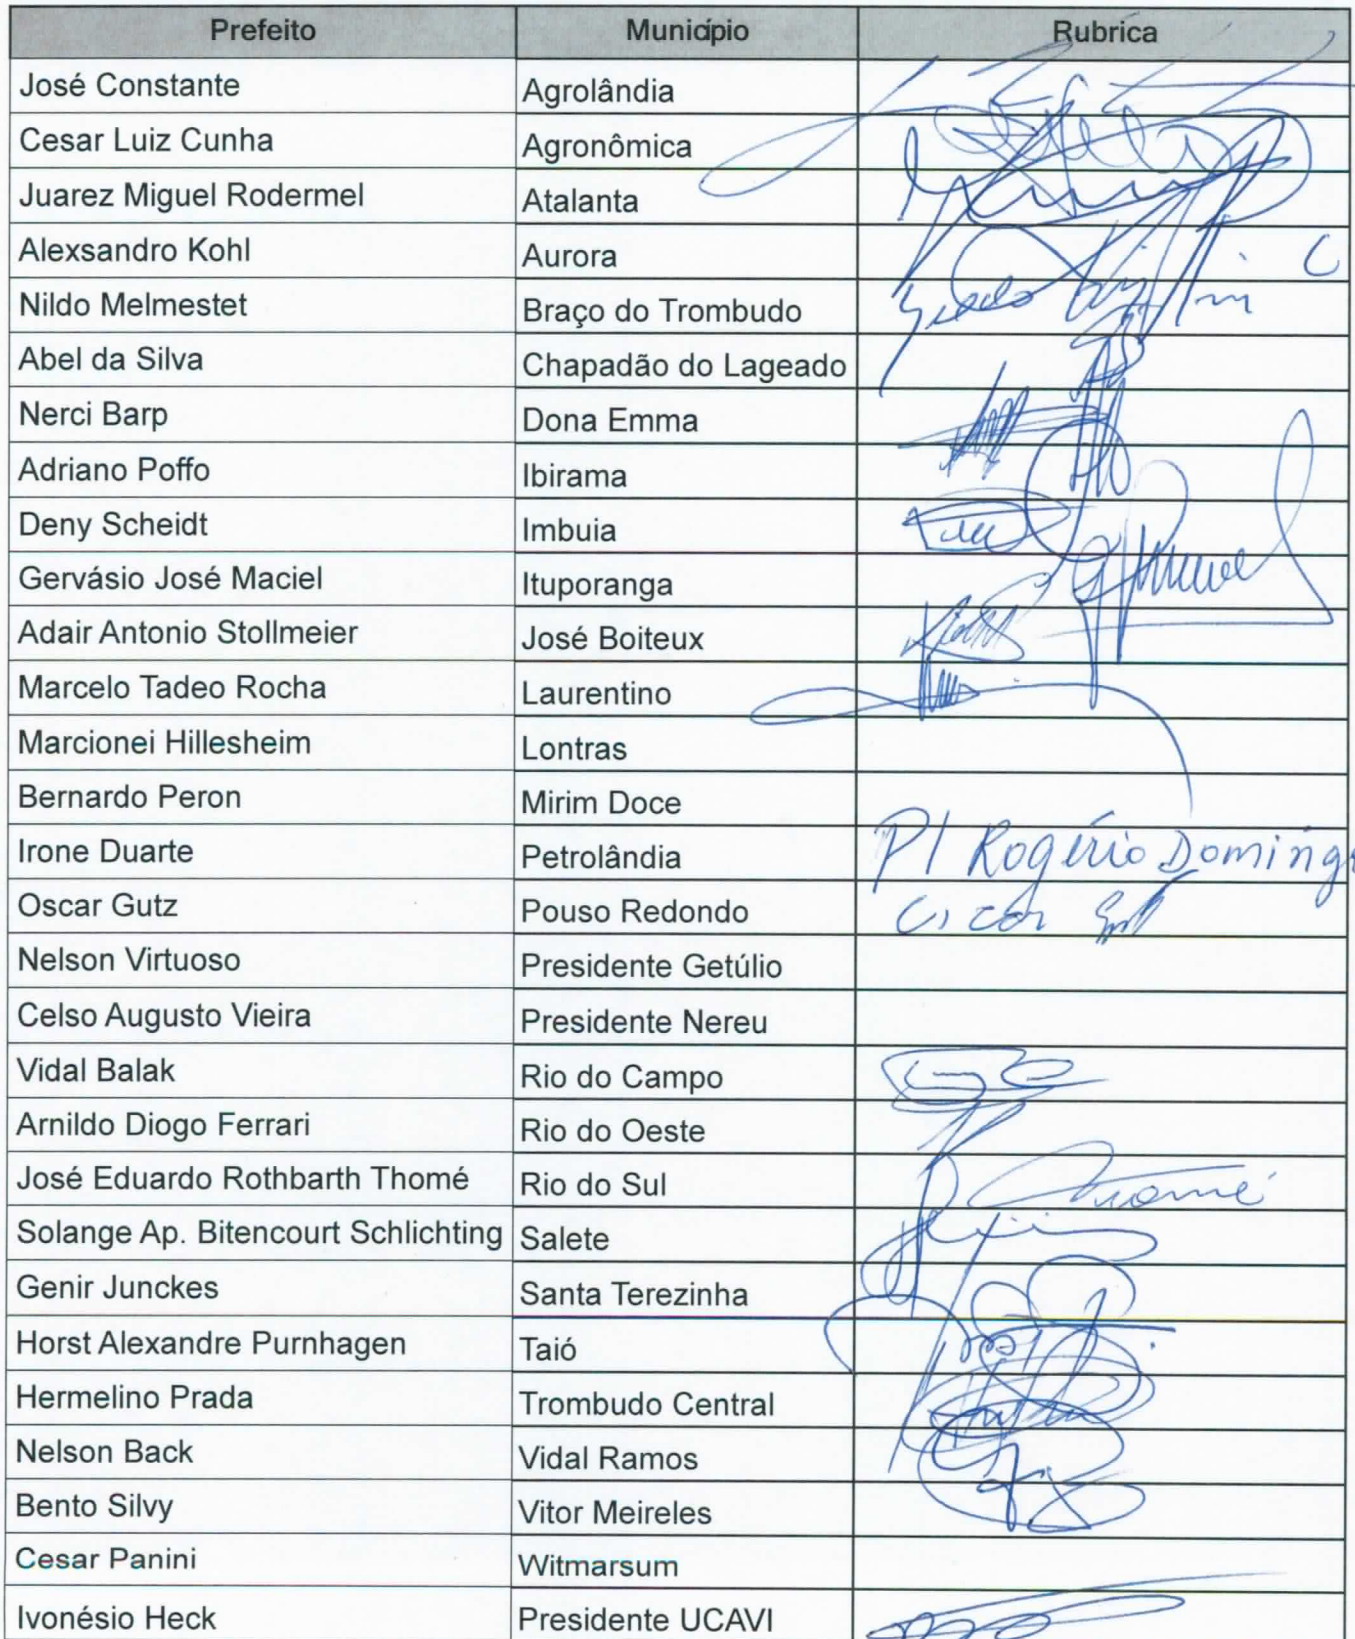 Prefeito Município Rubrica
José Constante Agrolândia
Cesar Luiz Cunha Agronômica
Juarez Miguel Rodermel Atalanta
Alexsandro Kohl Aurora
Nildo Melmestet Braço do Trombudo
Abel da Silva Chapadão do Lageado
Nerci Barp Dona Emma
Adriano Poffo Ibirama
Deny Scheidt Imbuia
Gervásio José Maciel Ituporanga
Adair Antonio Stollmeier José Boiteux
Marcelo Tadeo Rocha Laurentino
Marcionei Hillesheim Lontras
Bernardo Peron Mirim Doce
Irone Duarte Petrolândia P/ Rogério Doming
Oscar Gutz Pouso Redondo
Nelson Virtuoso Presidente Getúlio
Celso Augusto Vieira Presidente Nereu
Vidal Balak Rio do Campo
Arnildo Diogo Ferrari Rio do Oeste
José Eduardo Rothbarth Thomé Rio do Sul
Solange Ap. Bitencourt Schlichting Salete
Genir Junckes Santa Terezinha
Horst Alexandre Purnhagen Taió
Hermelino Prada Trombudo Central
Nelson Back Vidal Ramos
Bento Silvy Vitor Meireles
Cesar Panini Witmarsum
Ivonésio Heck Presidente UCAVI